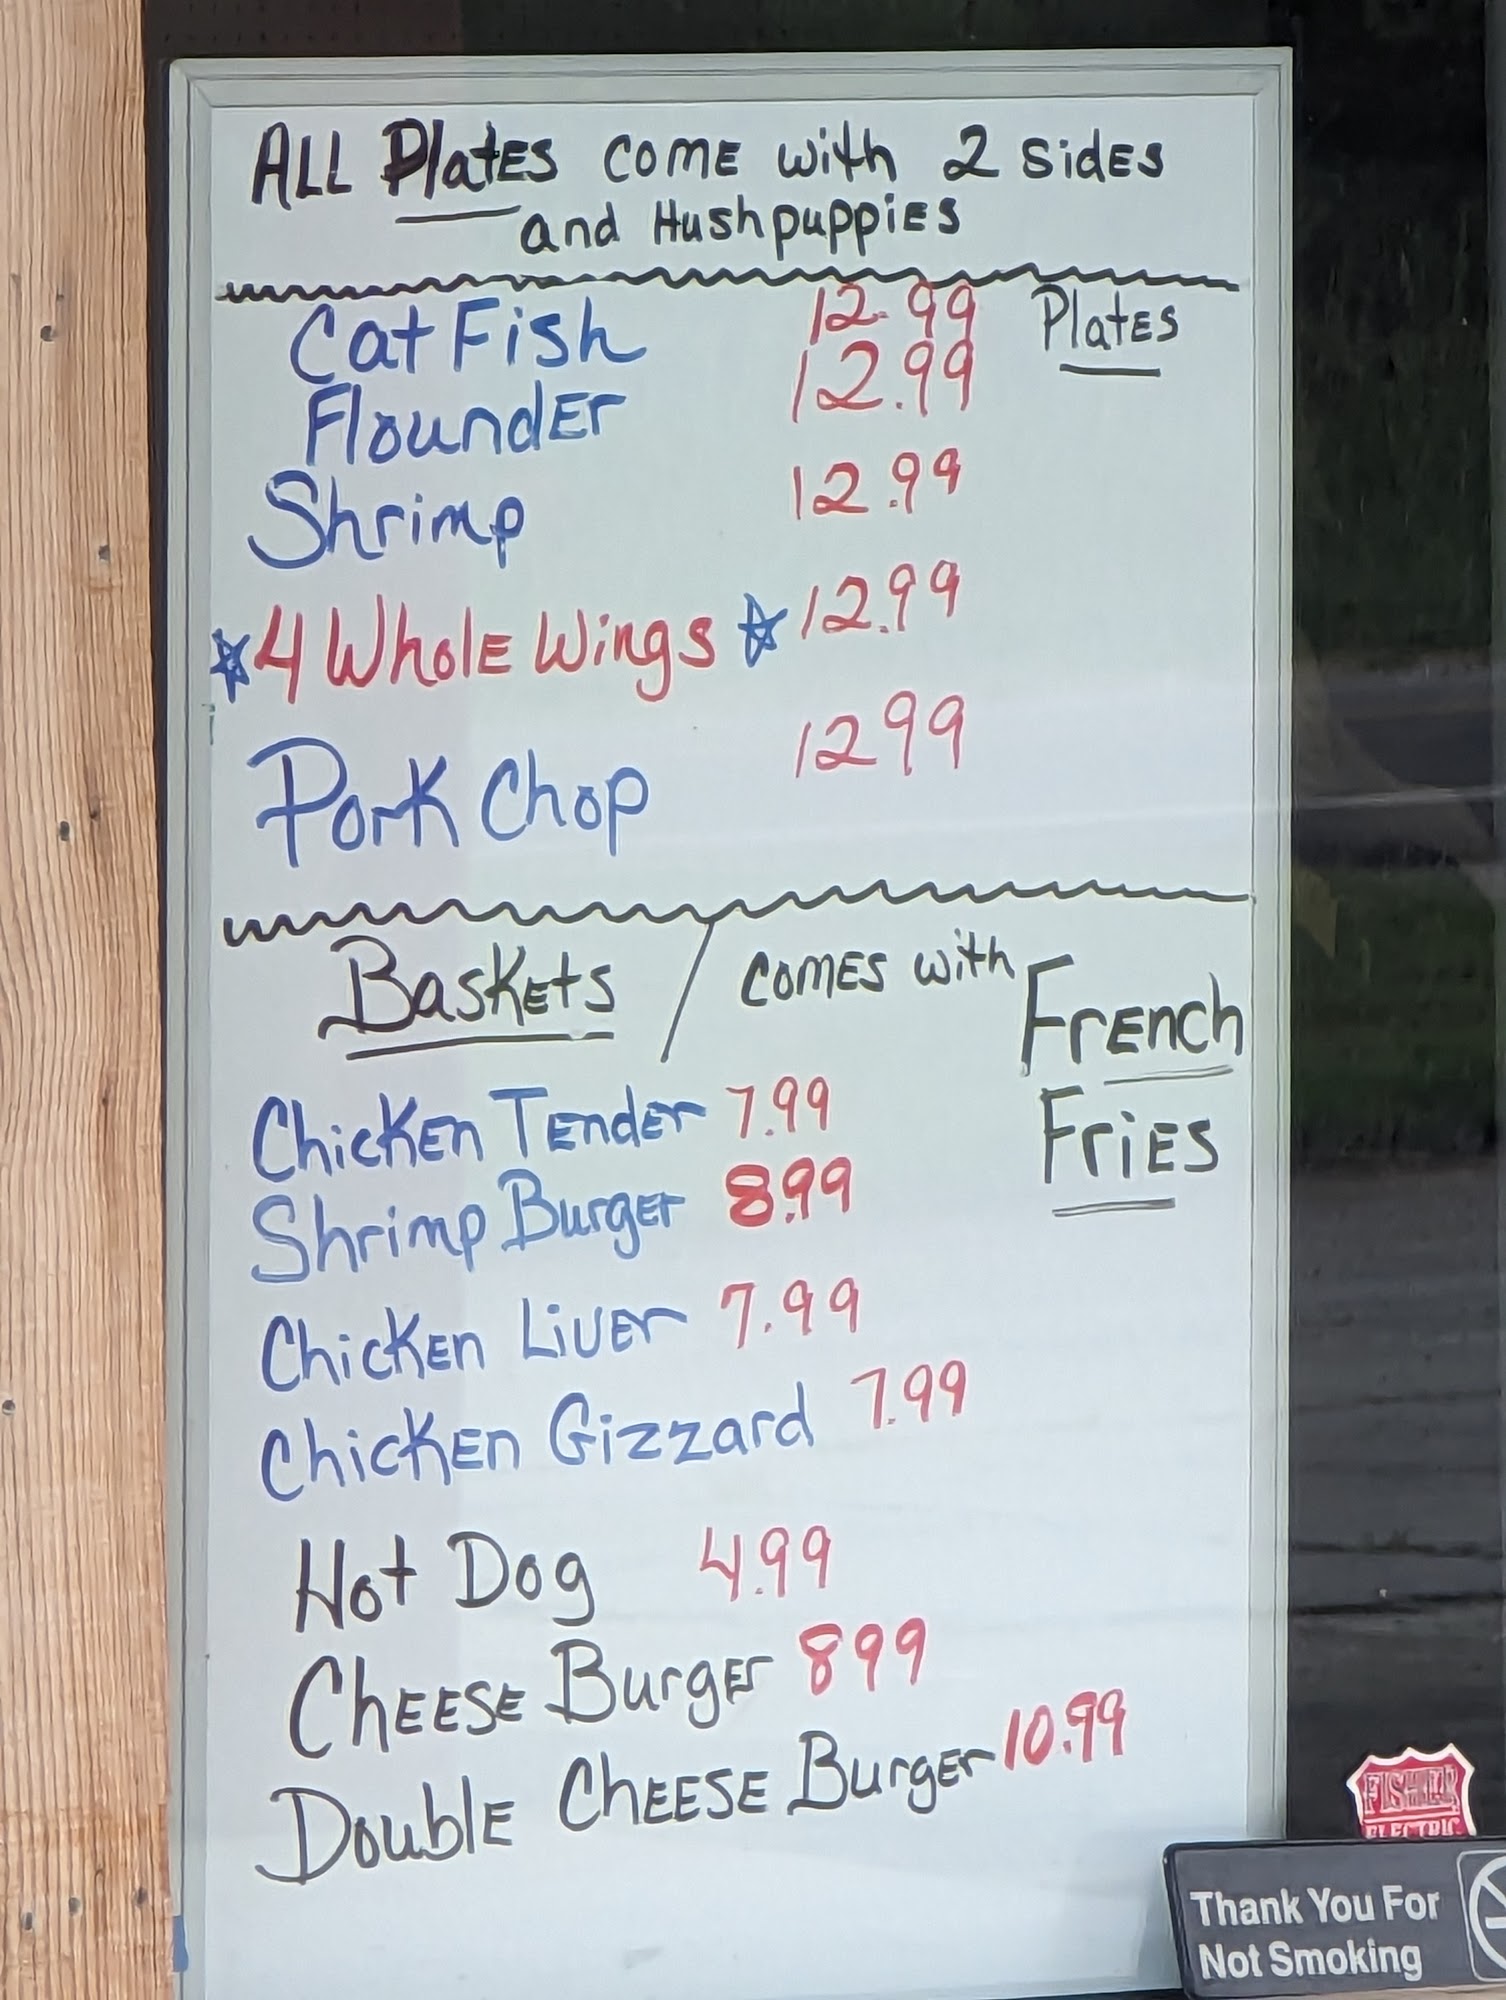 ALL PlatES COME with 2 SidES
and HushpuppiES
Cat Fish 12.99 PlatES
FloundEr 12.99
Shrimp 12.99
4 WholE Wings 12.99
Pork Chop 12 99
BaskEts / COMES with FrENch
FriES
ChickEn TEndEr 7.99
Shrimp BurgEr 8.99
ChickEn LivEr 7.99
ChickEn Gizzard 7.99
Hot Dog 4.99
ChEESE BurgEr 8 99
DoublE ChEESE BurgEr 10.99
FISHER
ELECTRIC
Thank You For
Not Smoking